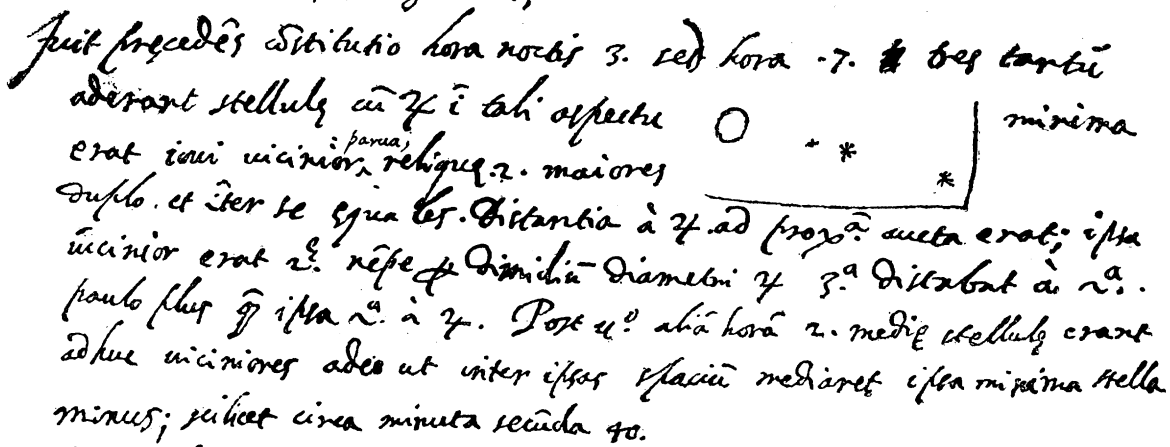 fuit pręcedẽs cõstitutio hora noctis 3. sed hora .7. tres tantũ
aderant stellulę cũ ♃ ĩ tali aspectu minima
erat ioui uicinior parua, reliquę .2. maiores
duplo. et ĩter se ęquales. Distantia à ♃ ad proxᵃ. aucta erat; ipsa
uicinior erat 2ę. nẽpe p dimidiũ diametri ♃ 3.ᵃ distabat à 2.ᵃ
paulo plus q̃ ipsa 2.ᵃ à ♃. Post uº. aliã horã 2. medię stellulę erant
adhuc uiciniores adeo ut inter ipsas spaciũ mediaret ipsa minima stella
minus; scilicet circa minuta secũda 40.